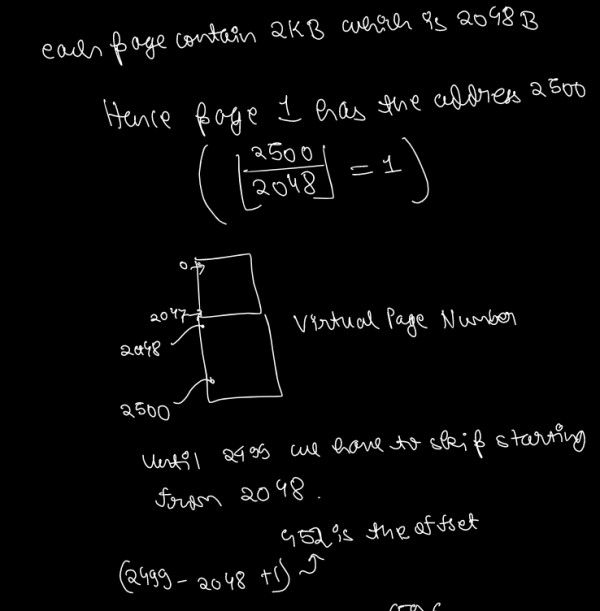 each page contain 2KB which is 2048 B
Hence page 1 has the address 2500
(⌊2500/2048⌋ = 1)
0
2047
2048
Virtual Page Number
2500
Until 2499 we have to skip starting
from 2048.
452 is the offset
(2499 - 2048 + 1)